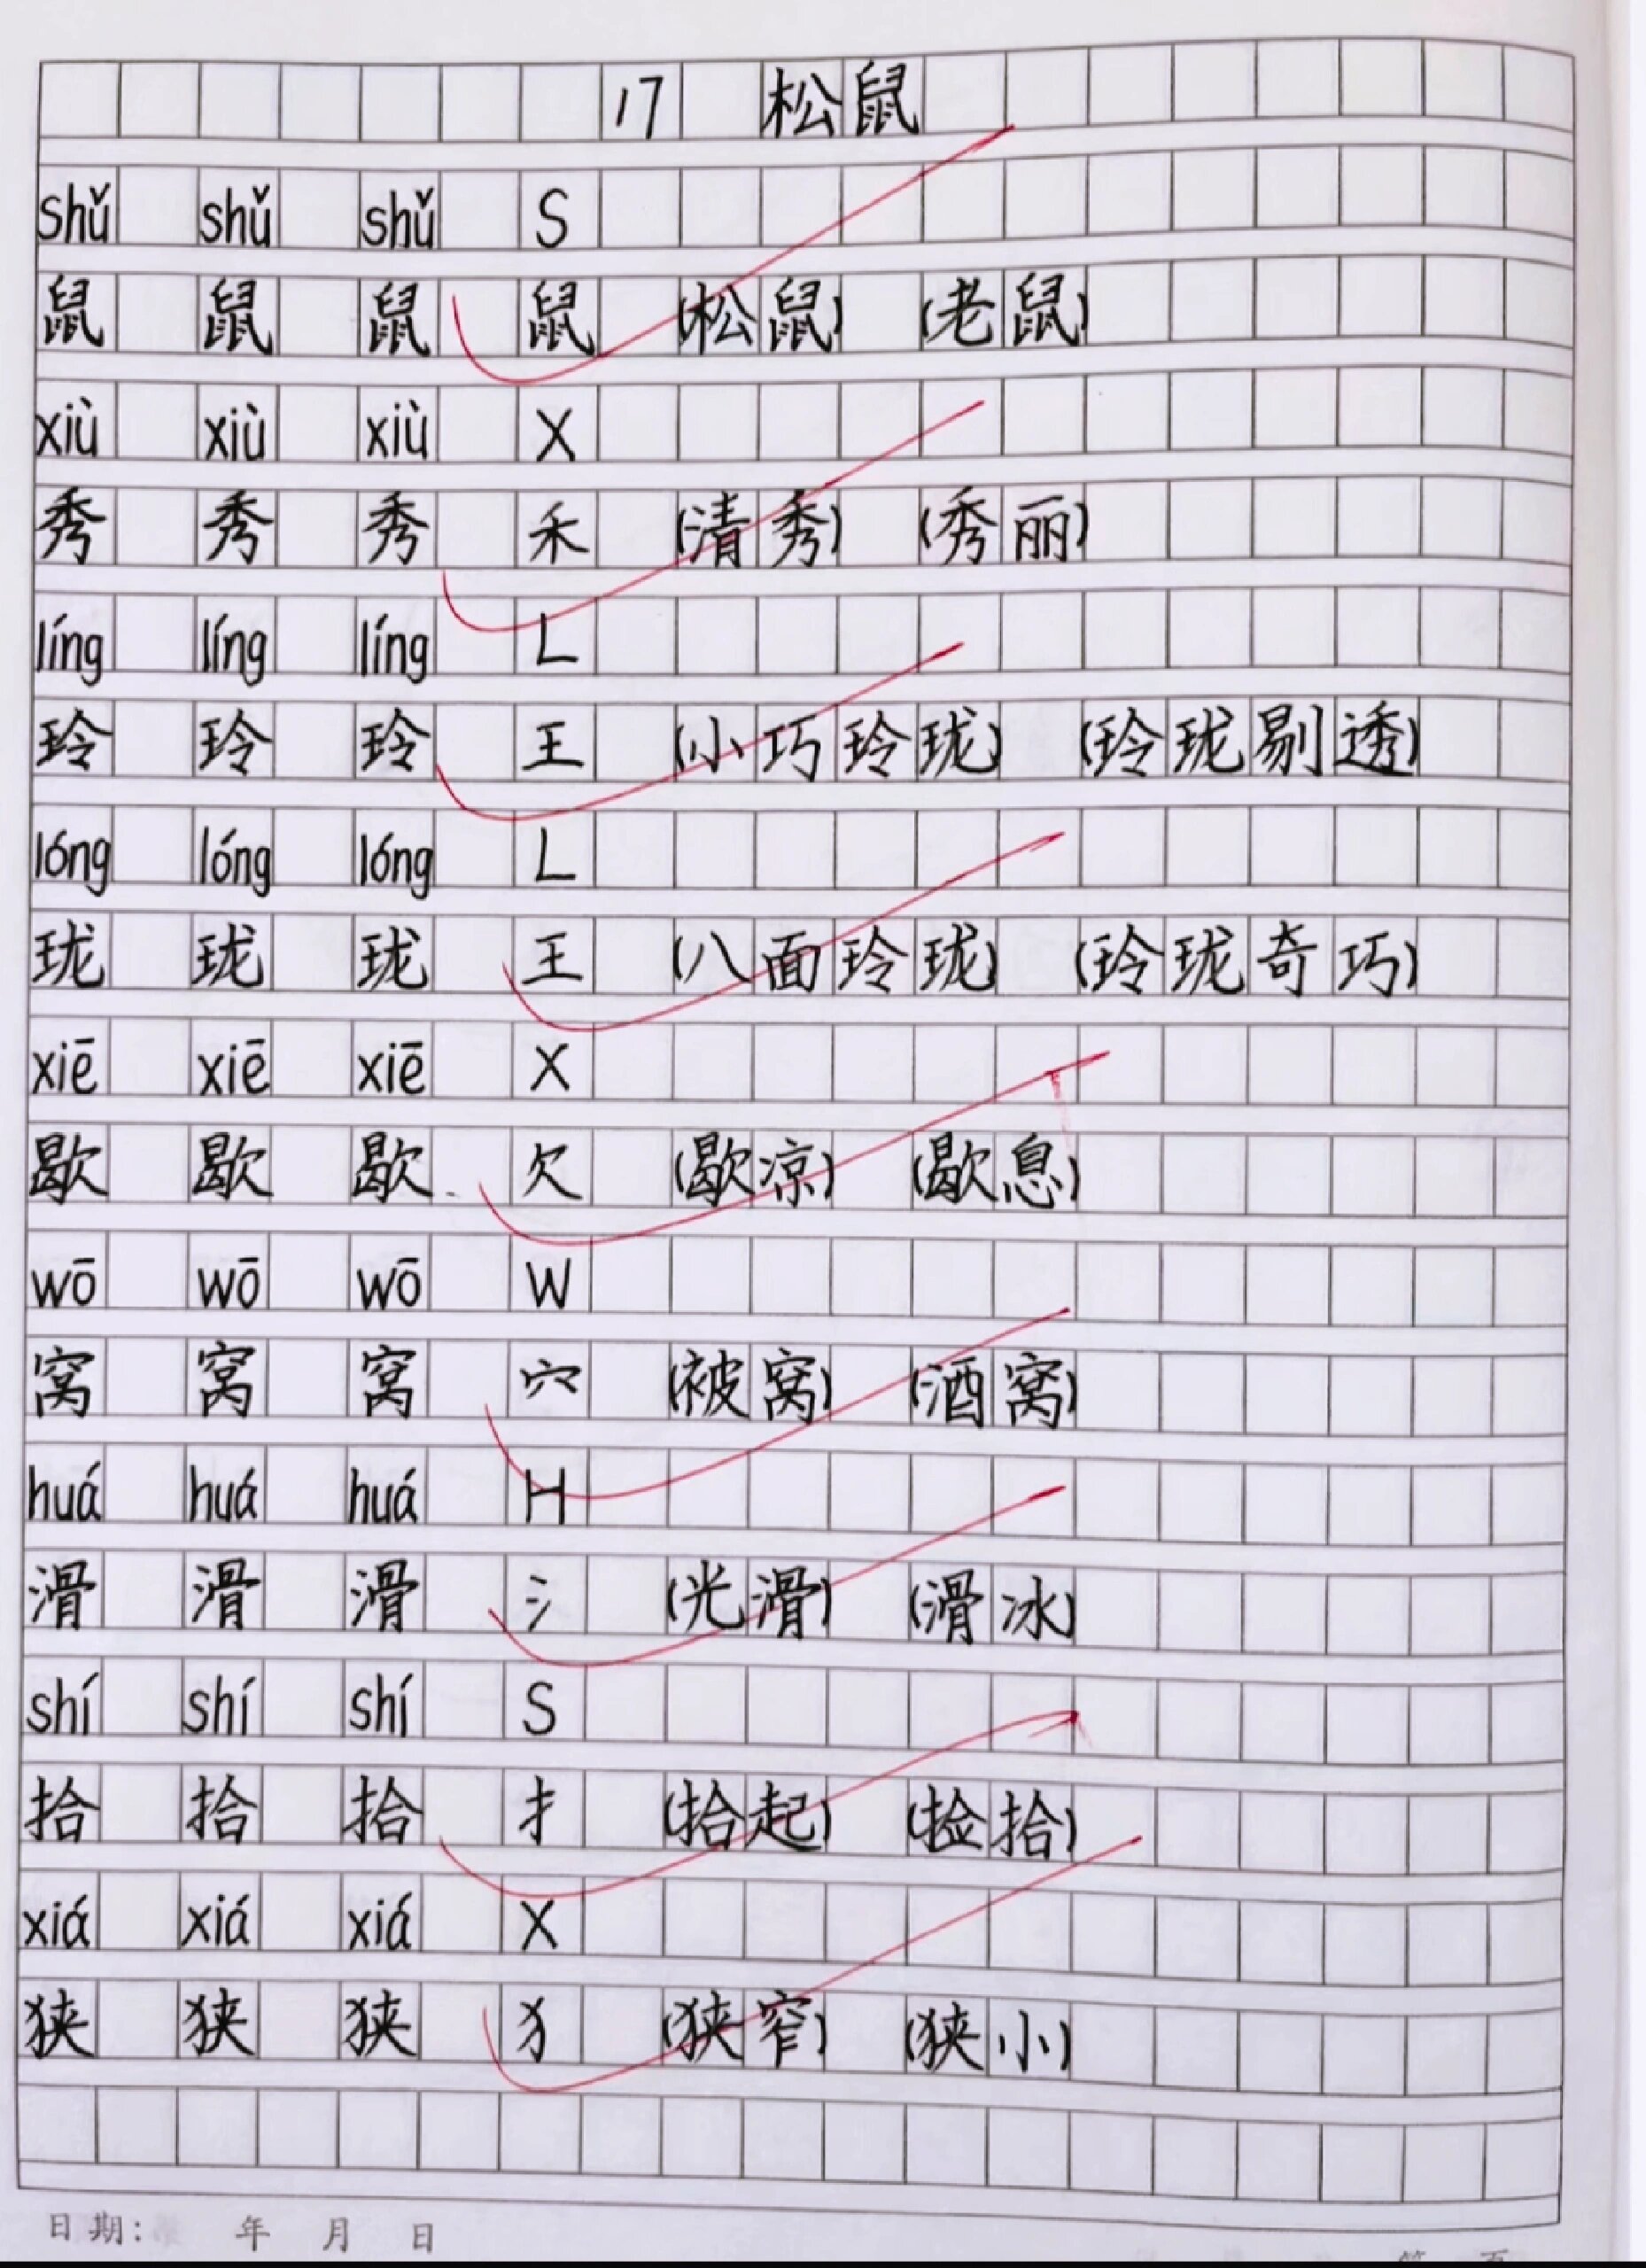 17 松鼠
shǔ shǔ shǔ S
鼠 鼠 鼠 鼠 (松鼠) (老鼠)
xiù xiù xiù X
秀 秀 秀 禾 (清秀) (秀丽)
líng líng líng L
玲 玲 玲 王 (小巧玲珑) (玲珑剔透)
lóng lóng lóng L
珑 珑 珑 王 (八面玲珑) (玲珑奇巧)
xiē xiē xiē X
歇 歇 歇 欠 (歇凉) (歇息)
wō wō wō W
窝 窝 窝 穴 (被窝) (酒窝)
huá huá huá H
滑 滑 滑 氵 (光滑) (滑冰)
shí shí shí S
拾 拾 拾 扌 (拾起) (捡拾)
xiá xiá xiá X
狭 狭 狭 犭 (狭窄) (狭小)
日期: 年 月 日